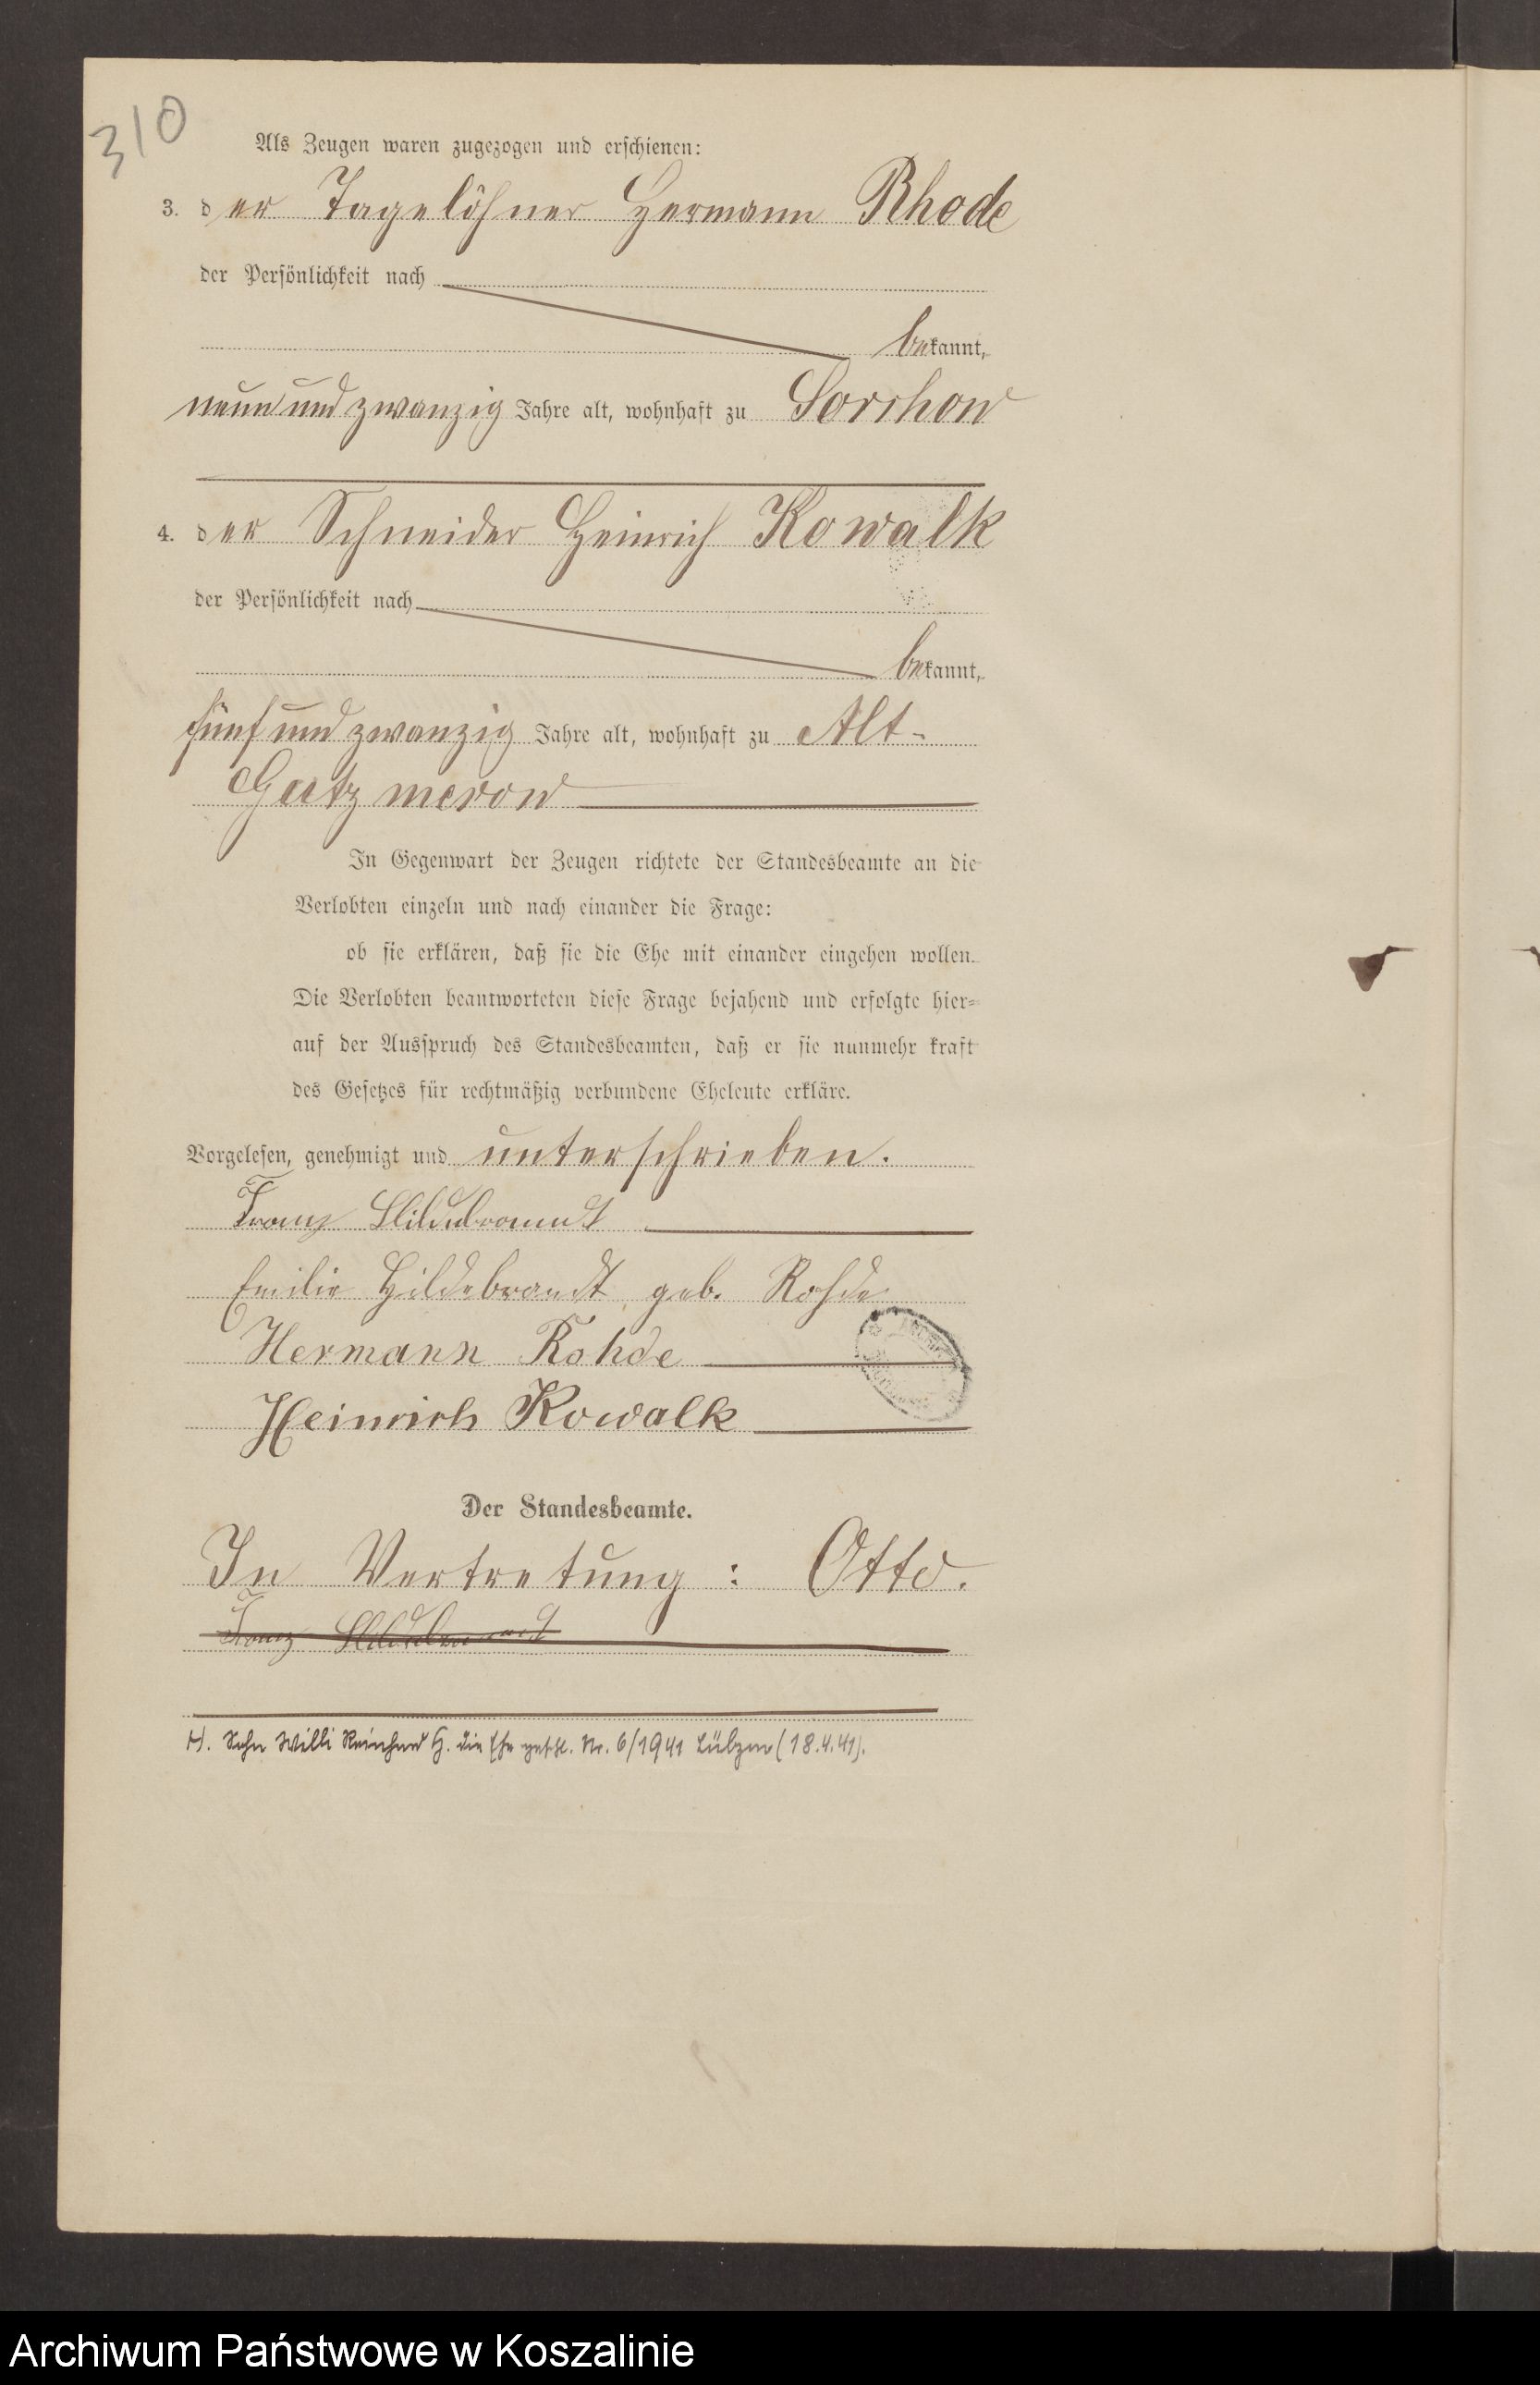 310
Als Zeugen waren zugezogen und erschienen:
3. der Tagelöhner Hermann Rhode
der Persönlichkeit nach
bekannt,
neunundzwanzig Jahre alt, wohnhaft zu Sorchow
4. der Schneider Heinrich Kowalk
der Persönlichkeit nach
bekannt,
fünfundzwanzig Jahre alt, wohnhaft zu Alt-
Gutzmerow
In Gegenwart der Zeugen richtete der Standesbeamte an die
Verlobten einzeln und nach einander die Frage:
ob sie erklären, daß sie die Ehe mit einander eingehen wollen.
Die Verlobten beantworteten diese Frage bejahend und erfolgte hier-
auf der Ausspruch des Standesbeamten, daß er sie nunmehr kraft
des Gesetzes für rechtmäßig verbundene Eheleute erkläre.
Vorgelesen, genehmigt und unterschrieben.
Franz Hildebrandt
Emilie Hildebrandt geb. Rohde
Hermann Rohde
Heinrich Kowalk
Der Standesbeamte.
In Vertretung: Otto.
Franz Hildebrandt
H. Sohn Willi Reinhard H. die Ehe geschl. Nr. 6/1941 Lübzow (18.4.41).
Archiwum Państwowe w Koszalinie